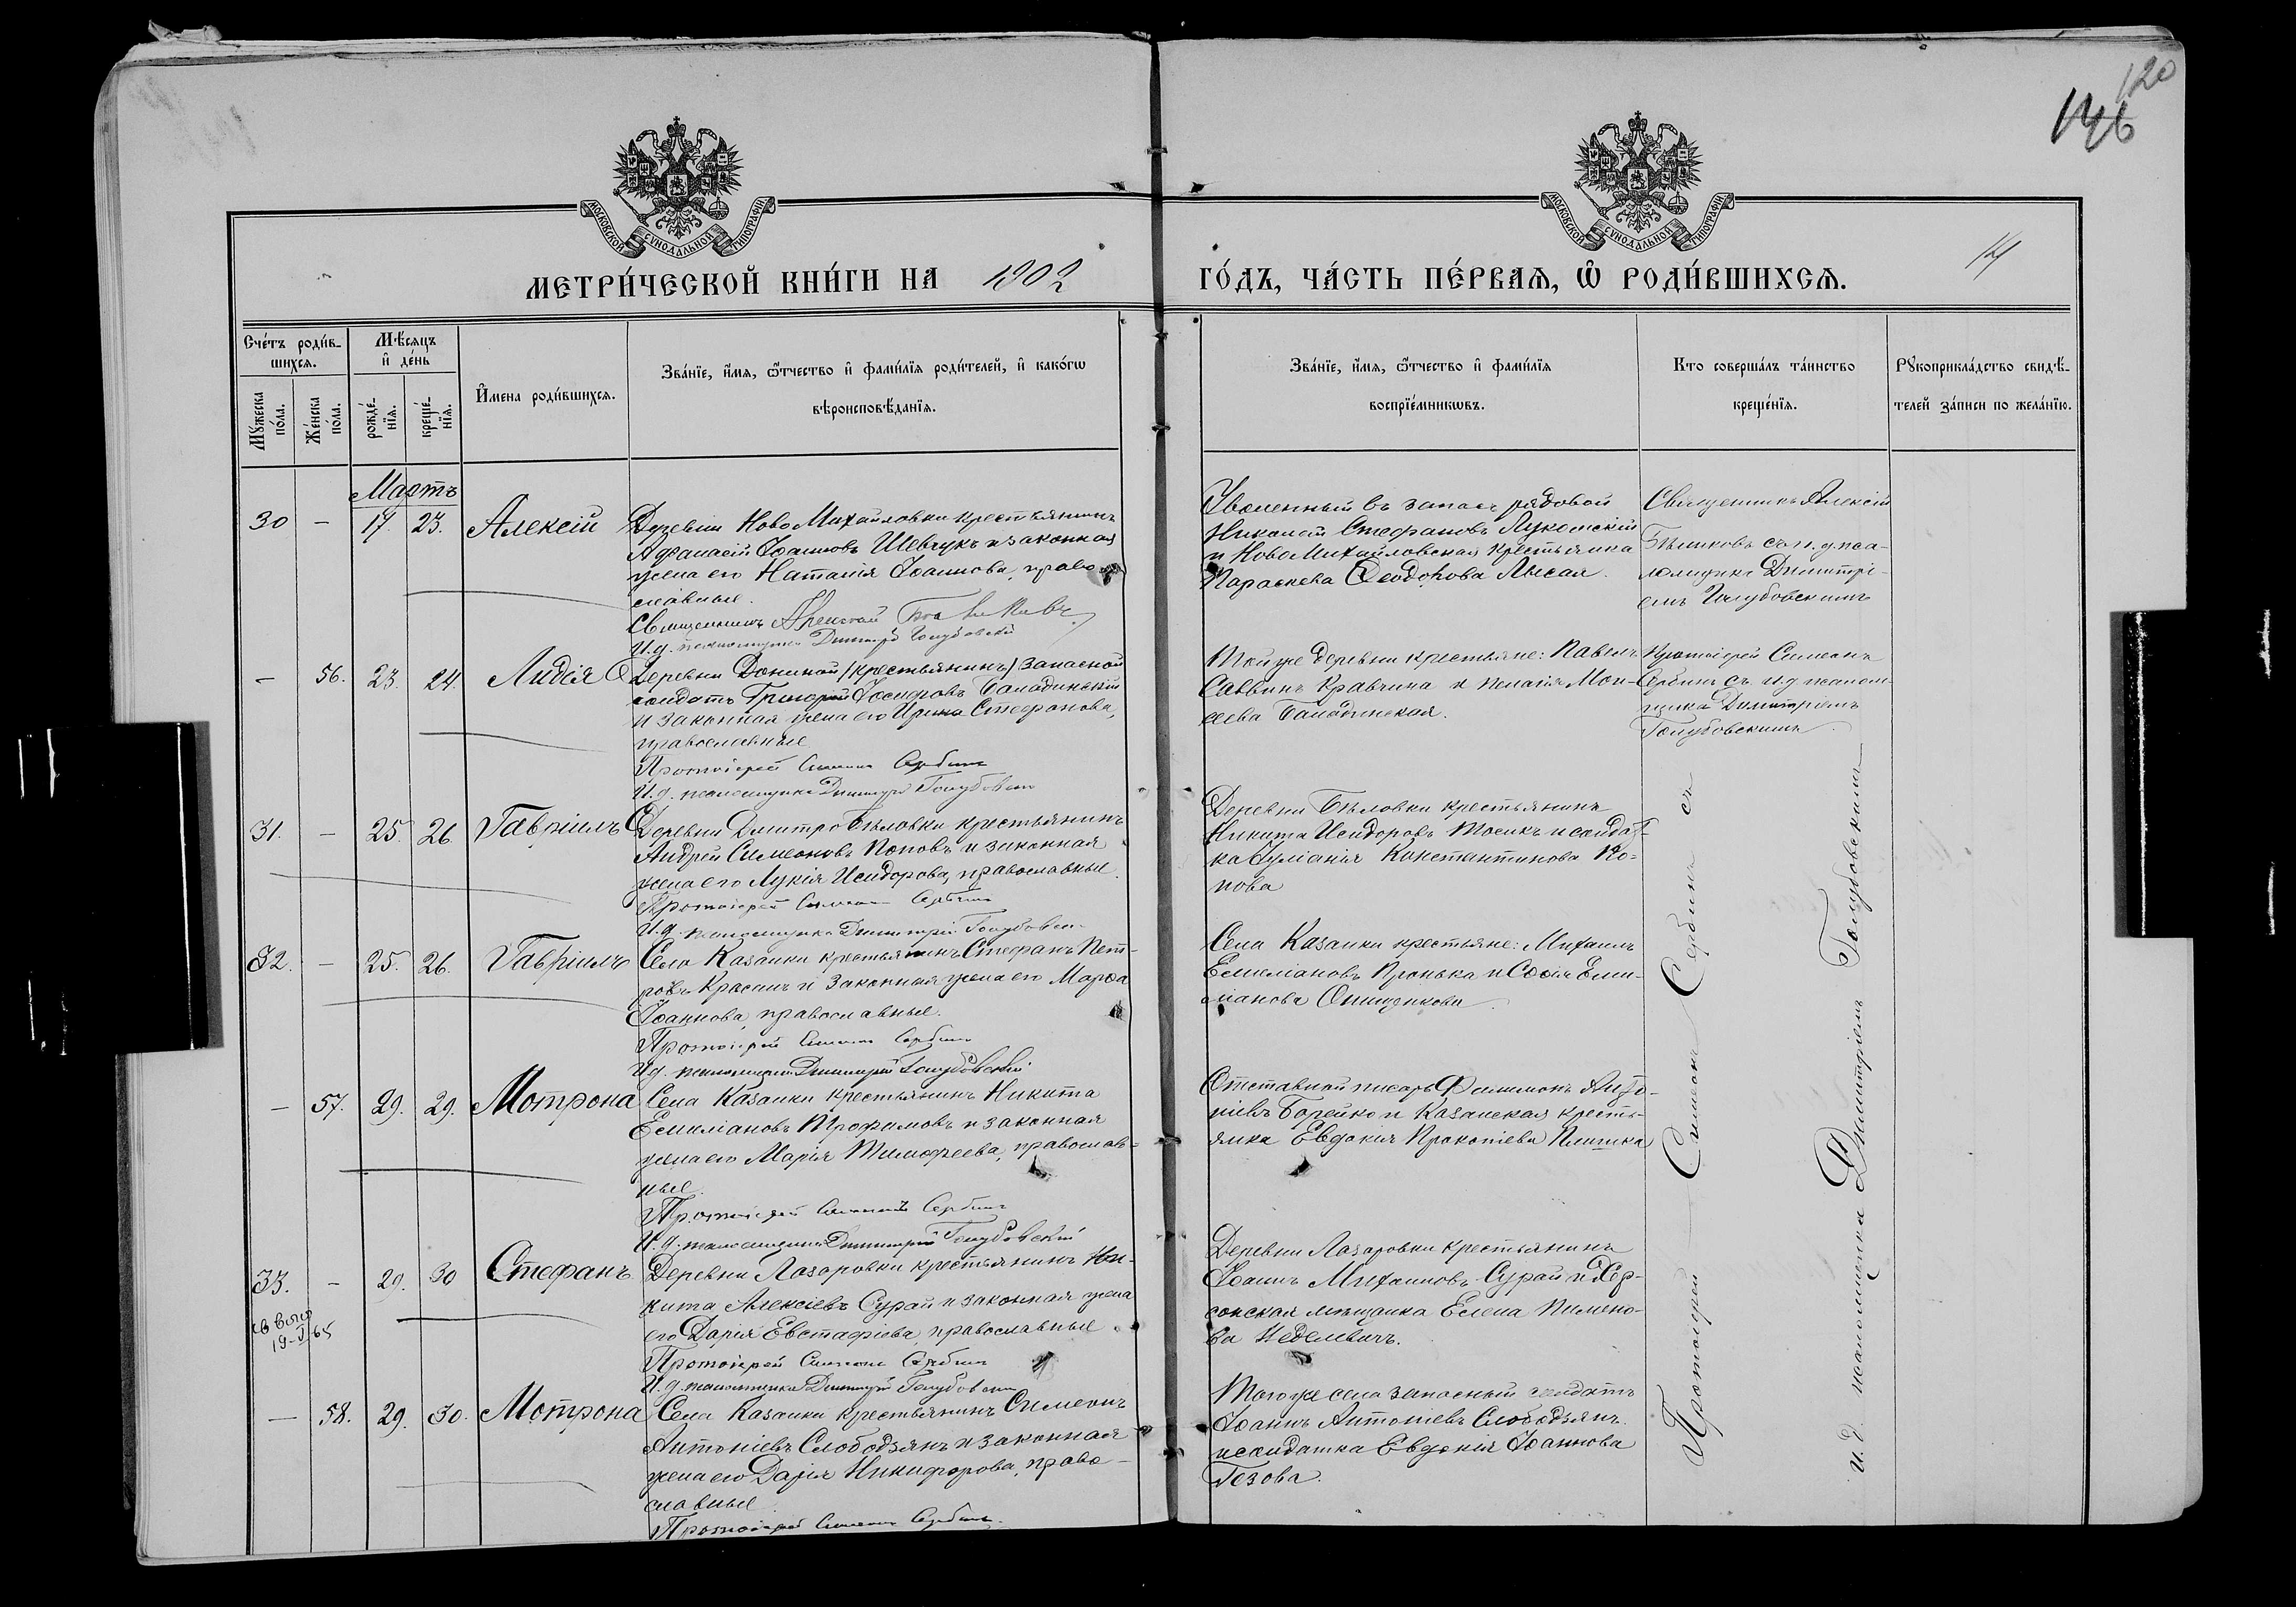 120
146
МОСКОВСКОЙ СУНОДАЛЬНОЙ ТИПОГРАФІИ
МОСКОВСКОЙ СУНОДАЛЬНОЙ ТИПОГРАФІИ
МЕТРИ́ЧЕСКОЙ КНИ́ГИ НА 1902
ГО́ДЪ, ЧА́СТЬ ПЕ́РВАЯ, Ѿ РОДИ́ВШИХСЯ.
14
Сче́тъ роди́в-
шихся.
Мѣ́сяцъ
и҆ де́нь
Мꙋ́жеска
по́ла.
Же́нска
по́ла.
рожде́-
нїя.
креще́-
нїя.
И҆мена роди́вшихся.
Зва́нїе, и҆́мя, ѻ҆́тчество и҆ фами́лїя роди́телей, и҆ како́гѡ
вѣроисповѣ́данїя.
Зва́нїе, и҆́мя, ѻ҆́тчество и҆ фами́лїя
воспрїе́мникѡвъ.
Кто соверша́лъ та́инство
креще́нїя.
Рꙋкоприкла́дство свидѣ́-
телей за́писи по жела́нїю.
Мартъ
30 — 17. 23. Алексій
Деревни НовоМихайловки крестьянинъ
Афанасій Іоанновъ Шевчукъ и законная
жена его Наталія Іоаннова, право-
славные.
Священникъ Алексій
И.д. псаломщика Димитрій Голубовскій
Уволенный въ запасъ рядовой
Николай Стефановъ Лукомскій
и НовоМихайловская крестьянка
Параскева Ѳеодорова Лысая.
Священникъ Алексій
Бѣликовъ съ и. д. пса-
ломщика Димитрі-
емъ Голубовскимъ
— 56. 23. 24. Лидія
Деревни Дониной (крестьянинъ) запасной
солдатъ Григорій Іосифовъ Баладинскій
и законная жена его Ирина Стефанова,
православные
Протоіерей Симеонъ Сербинъ
И.д. псаломщика Димитрій Голубовскій
Той же деревни крестьяне: Павелъ
Саввинъ Кравчина и Пелагія Мои-
сеева Баладинская.
Протоіерей Симеонъ
Сербинъ съ и.д. псалом-
щика Димитріемъ
Голубовскимъ
31. — 25. 26. Гавріилъ
Деревни ДмитроБѣловки крестьянинъ
Андрей Симеоновъ Поповъ и законная
жена его Лукія Исидорова, православные.
Протоіерей Симеонъ Сербинъ
И.д. псаломщика Димитрій Голубовскій
Деревни Бѣловки крестьянинъ
Никита Исидоровъ Тосикъ и солдат-
ка Іуліанія Константинова По-
пова
32. — 25. 26. Гавріилъ
Села Казанки крестьянинъ Стефанъ Пет-
ровъ и законная жена его Марѳа
Іоаннова, православные.
Протоіерей Симеонъ Сербинъ
И.д. псаломщика Димитрій Голубовскій
Села Казанки крестьяне: Михаилъ
Емиліановъ Пронька и Софія Еми-
ліанова Онищенкова
— 57. 29. 29. Мотрона
Села Казанки крестьянинъ Никита
Емиліановъ Трофимовъ и законная
жена его Марія Тимофеева, православ-
ные.
Протоіерей Симеонъ Сербинъ
И.д. псаломщика Димитрій Голубовскій
Отставной писарь Филимонъ Анто-
ніевъ Борейко и Казанская кресть-
янка Евдокія Прокопіева
33. — 29. 30 Стефанъ
19-V-65
Деревни Лазаровки крестьянинъ Ни-
кита Алексіевъ Сурай и законная жена
его Дарія Евстафіева, православные.
Протоіерей Симеонъ Сербинъ
И.д. псаломщика Димитрій Голубовскій
Деревни Лазаровки крестьянинъ
Іоаннъ Михаиловъ Сурай и Хер-
сонская мѣщанка Елена Пимено-
ва Неделевичъ.
— 58. 29. 30. Мотрона
Села Казанки крестьянинъ Симеонъ
Антоніевъ Слободзянъ и законная
жена его Дарія Никифорова, право-
славные
Протоіерей Симеонъ Сербинъ.
Того же села запасный солдатъ
Іоаннъ Антоніевъ Слободзянъ
и солдатка Евдокія Іоаннова
Гезова.
Протоіерей Симеонъ Сербинъ съ
и. д. псаломщика Димитріемъ Голубовскимъ